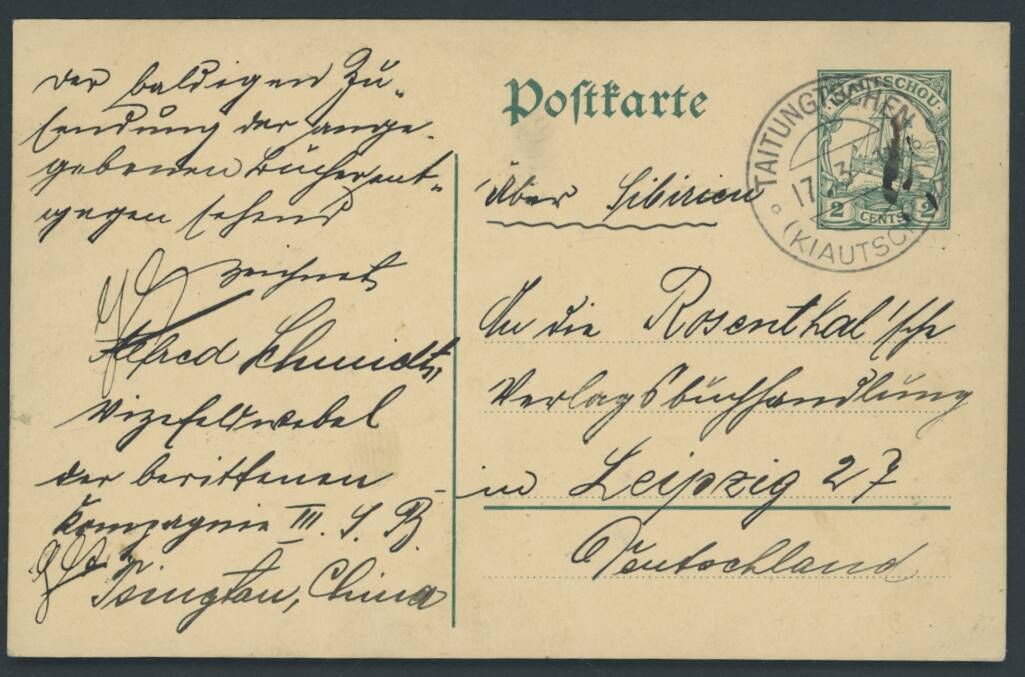 der baldigen Zu-
sendung der ange-
gebenen Bücher ent-
gegen sehend
zeichnet
Alfred Schmidt,
Vizefeldwebel
der berittenen
Kompagnie III. S. B.
Tsingtau, China
Postkarte
über Sibirien
TAITUNGTSCHEN
17 3
(KIAUTSCH
KIAUTSCHOU
2 CENTS 2
An die Rosenthal'sche
Verlagsbuchhandlung
in Leipzig 27
Deutschland